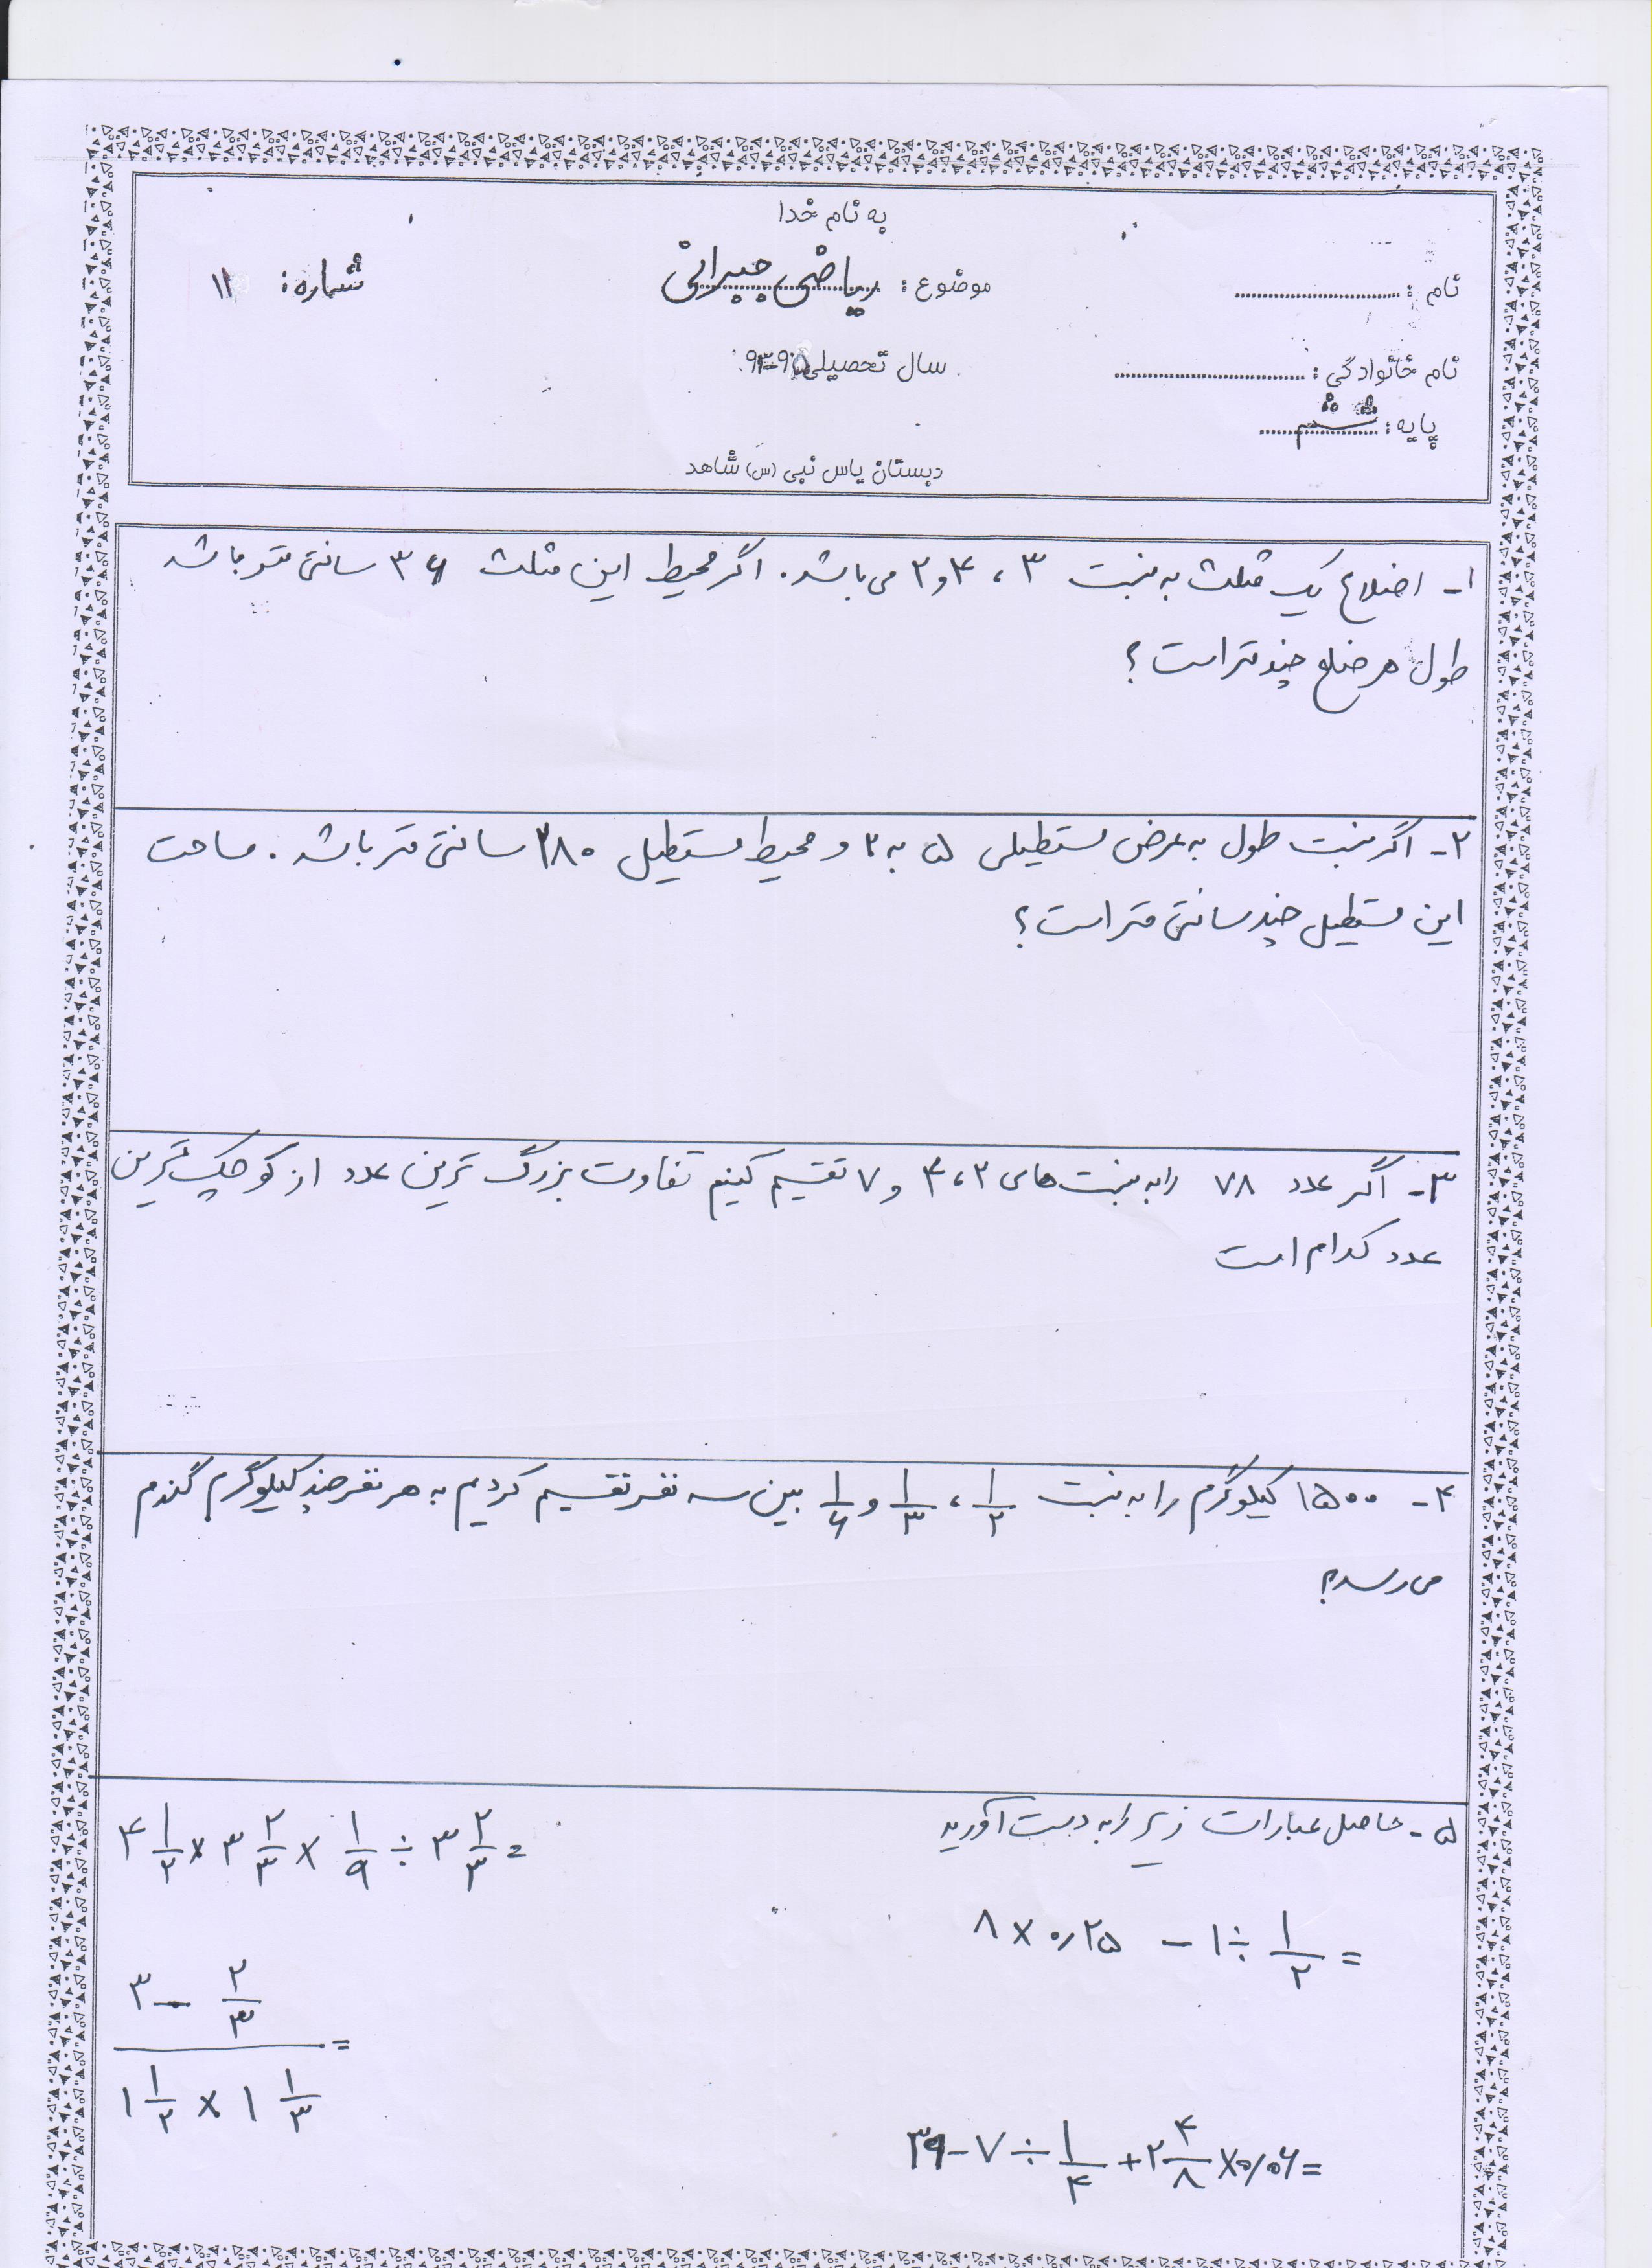 به نام خدا
نام : ........................ موضوع : ریاضی جبرانی شماره: ۱۱
نام خانوادگی : ........................ سال تحصیلی
پایه: ششم
دبستان یاس نبی (س) شاهد
۱- اضلاع یک مثلث به نسبت ۳ ، ۴ و ۲ می باشد. اگر محیط این مثلث ۳۶ سانتی متر باشد
طول هر ضلع چند متر است ؟
۲- اگر نسبت طول به عرض مستطیلی ۵ به ۲ و محیط مستطیل ۲۸۰ سانتی متر باشد . مساحت
این مستطیل چند سانتی متر است ؟
۳- اگر عدد ۷۸ را به نسبت های ۲ ، ۴ و ۷ تقسیم کنیم تفاوت بزرگ ترین عدد از کوچک ترین
عدد کدام است
۴- ۱۵۰۰ کیلوگرم را به نسبت ۱/۲ ، ۱/۳ و ۱/۶ بین سه نفر تقسیم کردیم به هر نفر چند کیلوگرم گندم
می رسد؟
۵- حاصل عبارات زیر را به دست آورید
۴ ۱/۲ × ۳ ۲/۳ × ۱/۹ ÷ ۳ ۲/۳ =
۸ × ۰/۲۵ - ۱ ÷ ۱/۲ =
۳ - ۲/۳
=
۱ ۱/۲ × ۱ ۱/۳
۳۹ - ۷ ÷ ۱/۴ + ۲ ۴/۸ × ۰/۰۶ =